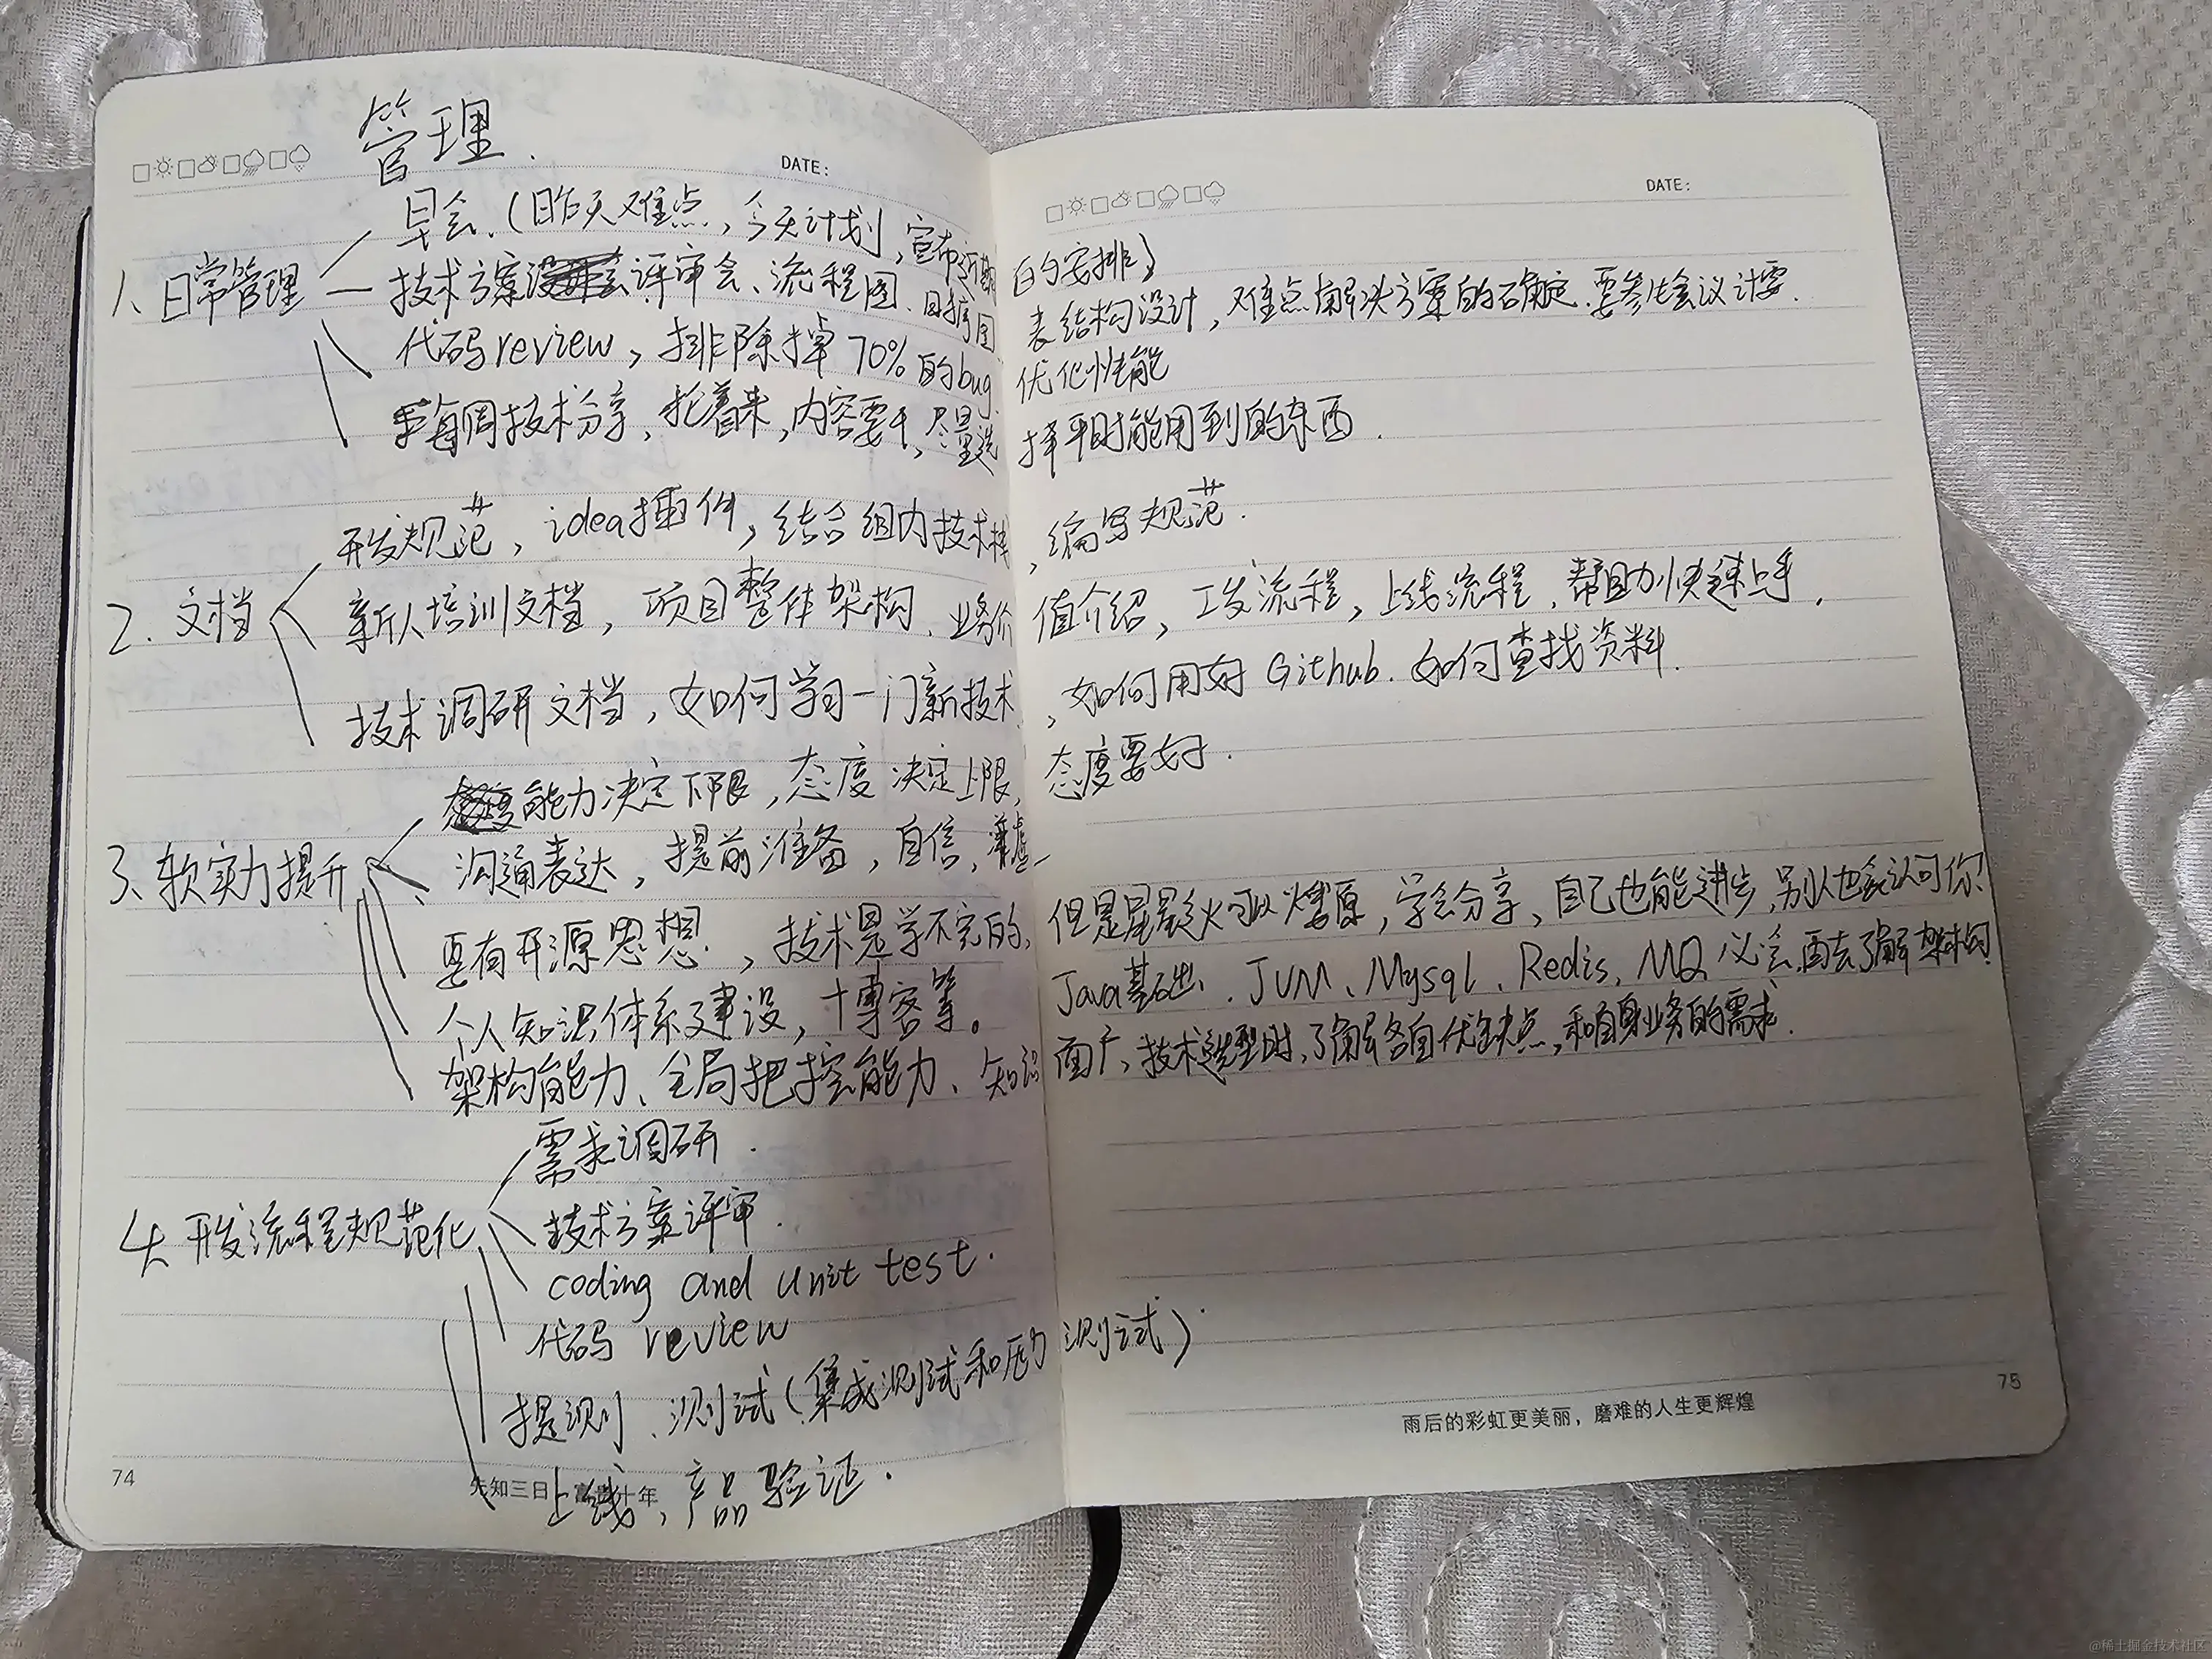 管理.
DATE:
DATE:
早会.(昨天难点,今天计划,宣布近期的安排)
1、日常管理
技术方案评审会、流程图、时序图、表结构设计,难点解决方案的确定.要参生会议计要.
代码review,排除掉70%的bug、优化性能
每周技术分享,轮着来,内容要干,尽量选择平时能用到的东西.
开发规范,idea插件,结合组内技术栈,编写规范.
2.文档
新人培训文档,项目整体架构、业务价值介绍,工发流程,上线流程,帮助快速上手.
技术调研文档,如何学习一门新技术,如何用好Github.如何查找资料.
能力决定下限,态度决定上限,态度要好.
3、软实力提升
沟通表达,提前准备,自信,谦虚
要有开源思想.,技术是学不完的,但是星星之火可以燎原,学会分享,自己也能进步,别人也会认可你!
个人知识体系建设,博客等。Java基础.JVM、Mysql、Redis,MQ必会,再去了解架构
架构能力、全局把控能力、知识面广,技术选型时,了解各自优缺点,和自身业务的需求.
需求调研.
4.开发流程规范化
技术方案评审.
coding and unit test.
代码review
提测、测试(集成测试和压力测试).
上线,产品验证.
74
先知三日 富贵十年
雨后的彩虹更美丽,磨难的人生更辉煌
75
@稀土掘金技术社区